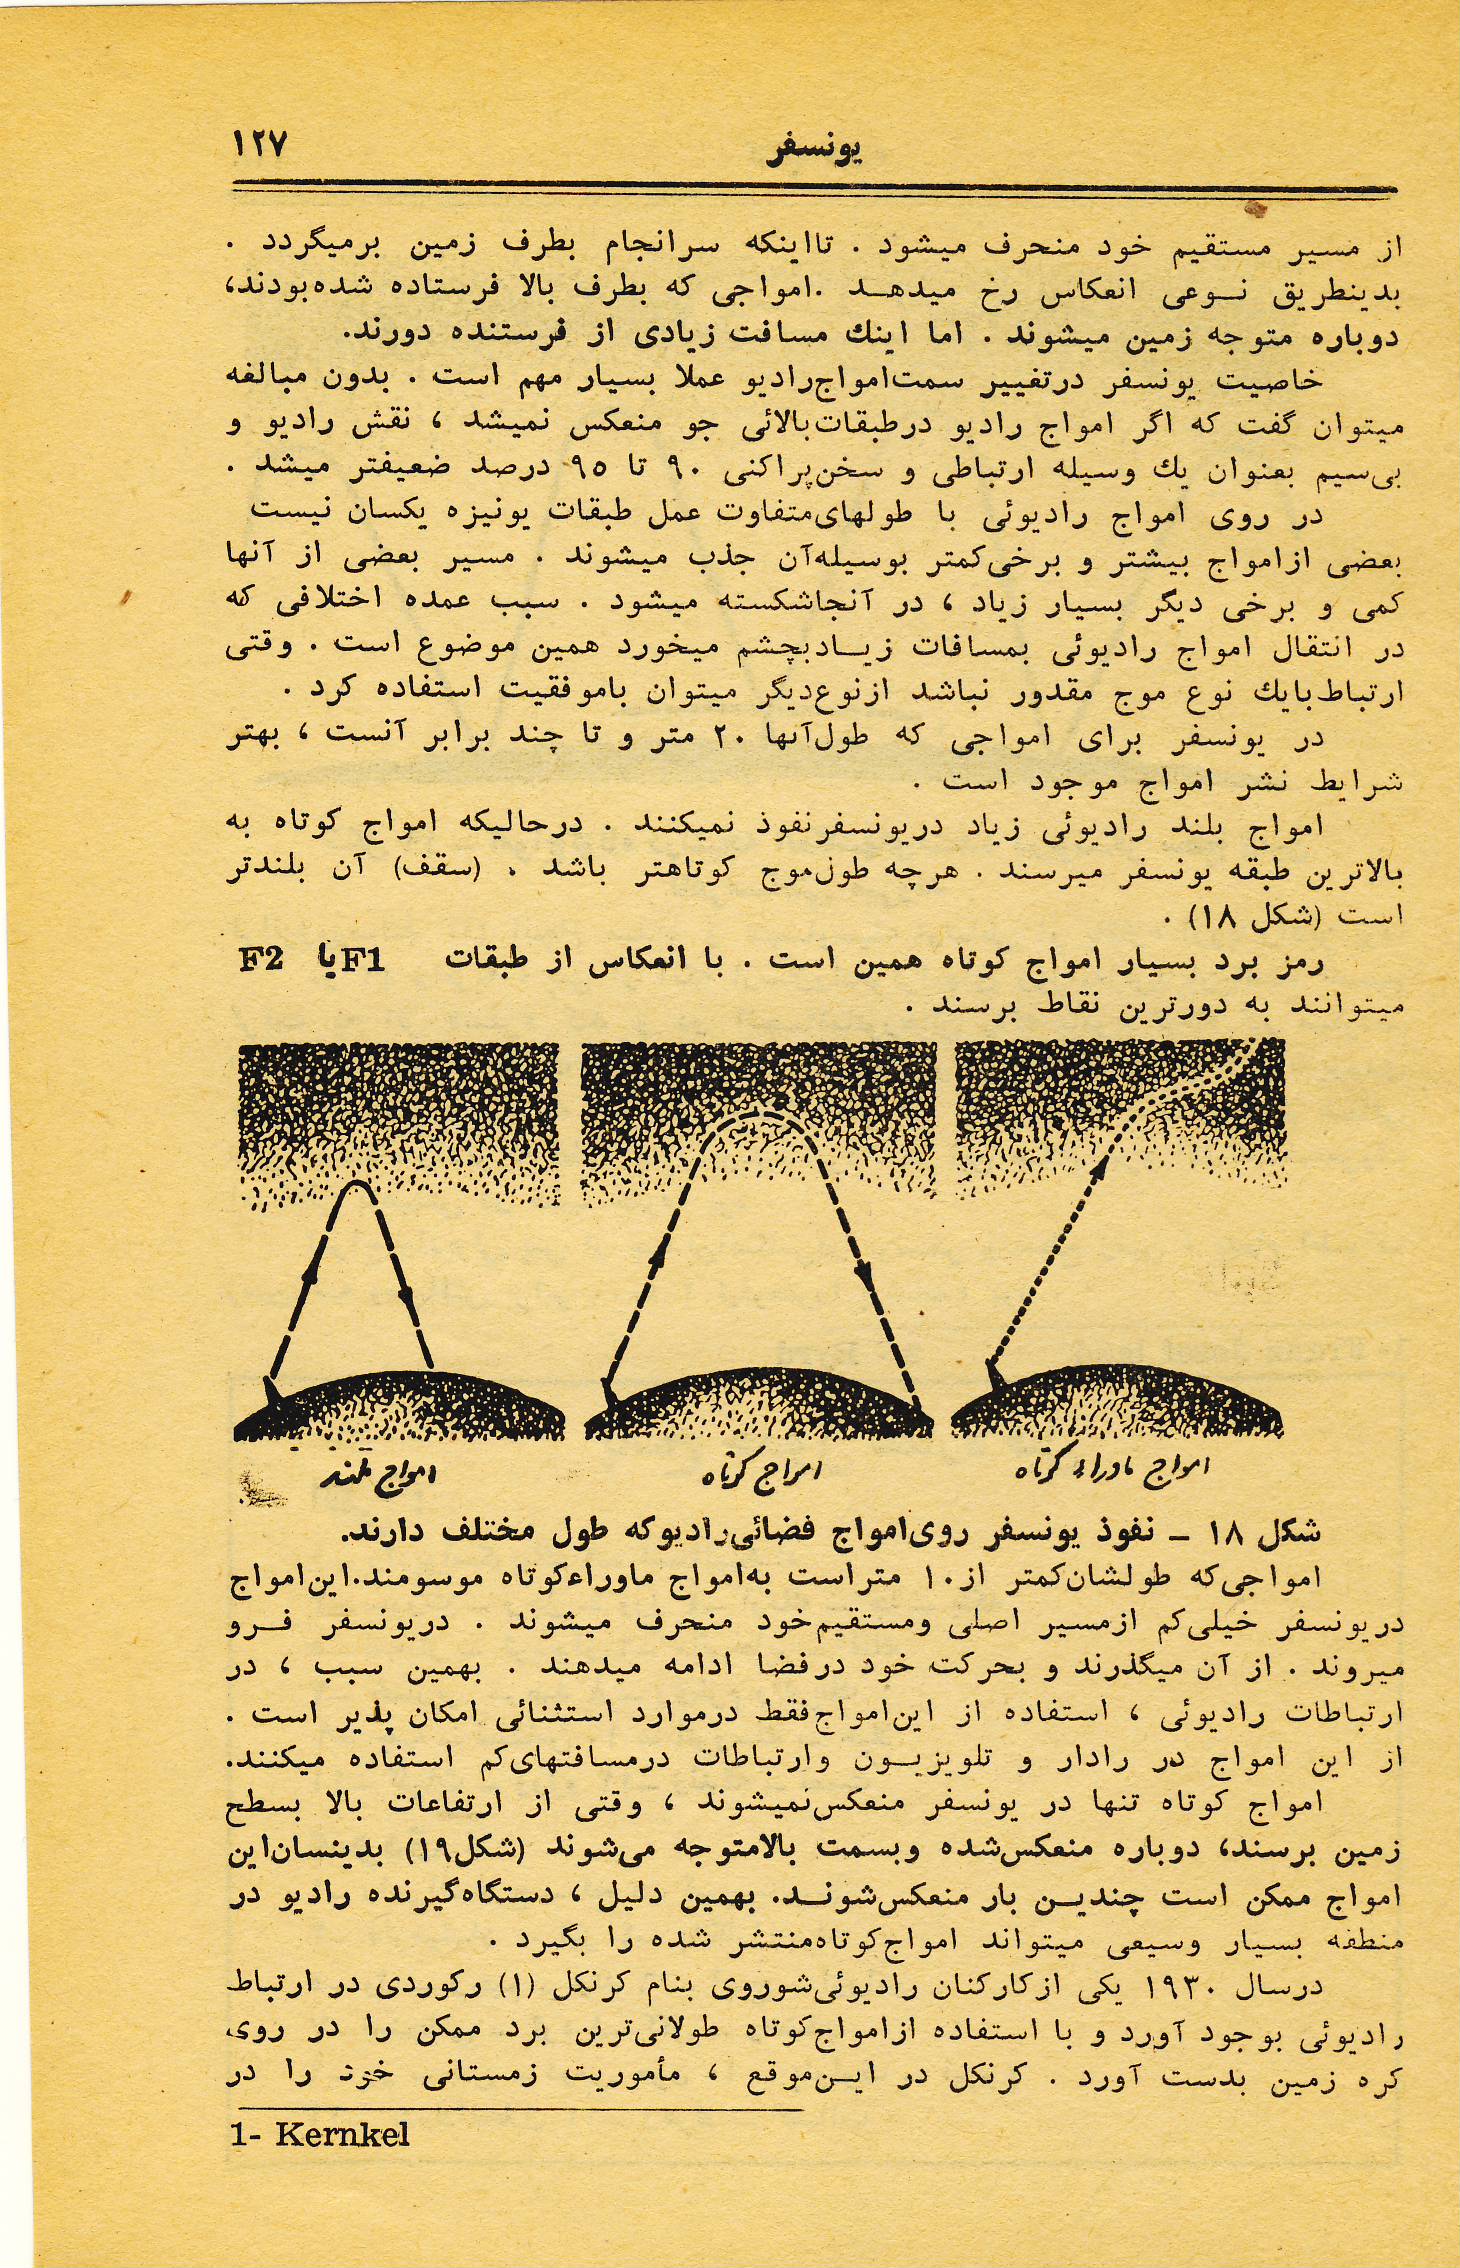 یونسفر ۱۲۷
از مسیر مستقیم خود منحرف میشود . تااینکه سرانجام بطرف زمین برمیگردد .
بدینطریق نـوعی انعکاس رخ میدهـد .امواجی که بطرف بالا فرستاده شده‌بودند،
دوباره متوجه زمین میشوند . اما اینك مسافت زیادی از فرستنده دورند.
خاصیت یونسفر درتغییر سمت‌امواج‌رادیو عملا بسیار مهم است . بدون مبالغه
میتوان گفت که اگر امواج رادیو درطبقات‌بالائی جو منعکس نمیشد ، نقش رادیو و
بی‌سیم بعنوان یك وسیله ارتباطی و سخن‌پراکنی ۹۰ تا ۹۵ درصد ضعیفتر میشد .
در روی امواج رادیوئی با طولهای‌متفاوت عمل طبقات یونیزه یکسان نیست
بعضی ازامواج بیشتر و برخی‌کمتر بوسیله‌آن جذب میشوند . مسیر بعضی از آنها
کمی و برخی دیگر بسیار زیاد ، در آنجاشکسته میشود . سبب عمده اختلافی که
در انتقال امواج رادیوئی بمسافات زیـادبچشم میخورد همین موضوع است . وقتی
ارتباط‌بایك نوع موج مقدور نباشد ازنوع‌دیگر میتوان باموفقیت استفاده کرد .
در یونسفر برای امواجی که طول‌آنها ۲۰ متر و تا چند برابر آنست ، بهتر
شرایط نشر امواج موجود است .
امواج بلند رادیوئی زیاد دریونسفرنفوذ نمیکنند . درحالیکه امواج کوتاه به
بالاترین طبقه یونسفر میرسند . هرچه طول‌موج کوتاهتر باشد . (سقف) آن بلندتر
است (شکل ۱۸) .
رمز برد بسیار امواج کوتاه همین است . با انعکاس از طبقات F1یا F2
میتوانند به دورترین نقاط برسند .
امواج ماوراء کوتاه امواج کوتاه امواج بلند
شکل ۱۸ ــ نفوذ یونسفر روی‌امواج فضائی‌رادیوکه طول مختلف دارند.
امواجی‌که طولشان‌کمتر از۱۰ متراست به‌امواج ماوراءکوتاه موسومند.این‌امواج
دریونسفر خیلی‌کم ازمسیر اصلی ومستقیم‌خود منحرف میشوند . دریونسفر فـرو
میروند . از آن میگذرند و بحرکت خود درفضا ادامه میدهند . بهمین سبب ، در
ارتباطات رادیوئی ، استفاده از این‌امواج‌فقط درموارد استثنائی امکان پذیر است .
از این امواج در رادار و تلویزیـون وارتباطات درمسافتهای‌کم استفاده میکنند.
امواج کوتاه تنها در یونسفر منعکس‌نمیشوند ، وقتی از ارتفاعات بالا بسطح
زمین برسند، دوباره منعکس‌شده وبسمت بالامتوجه می‌شوند (شکل۱۹) بدینسان‌این
امواج ممکن است چندیـن بار منعکس‌شونـد. بهمین دلیل ، دستگاه‌گیرنده رادیو در
منطقه بسیار وسیعی میتواند امواج‌کوتاه‌منتشر شده را بگیرد .
درسال ۱۹۳۰ یکی ازکارکنان رادیوئی‌شوروی بنام کرنکل (۱) رکوردی در ارتباط
رادیوئی بوجود آورد و با استفاده ازامواج‌کوتاه طولانی‌ترین برد ممکن را در روی
کره زمین بدست آورد . کرنکل در ایـن‌موقع ، مأموریت زمستانی خود را در
1- Kernkel